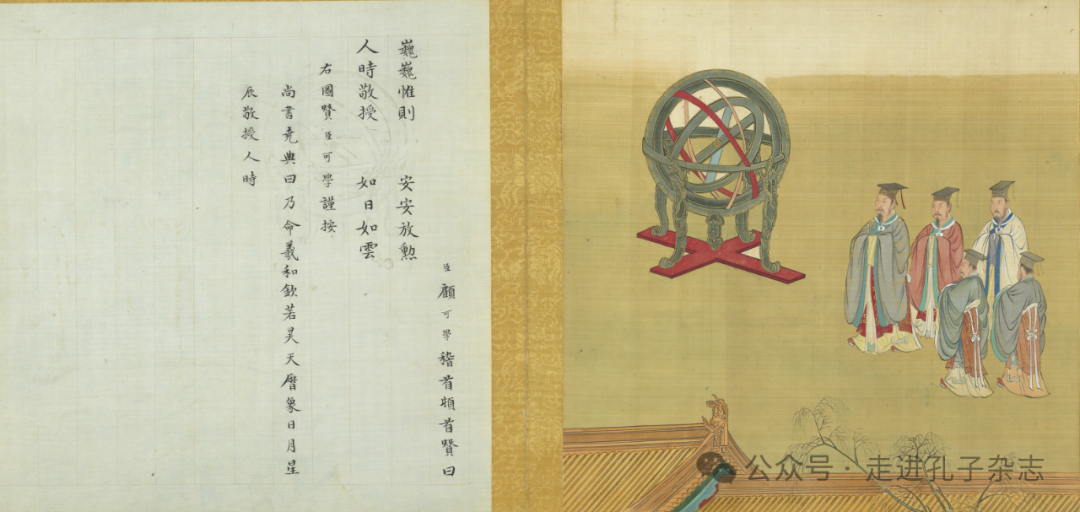 臣顧可學稽首頓首賛曰
巍巍惟則 安安放勳
人時敬授 如日如雲
右圖賛臣可學謹按
尚書堯典曰乃命羲和欽若昊天曆象日月星
辰敬授人時
公众号·走进孔子杂志